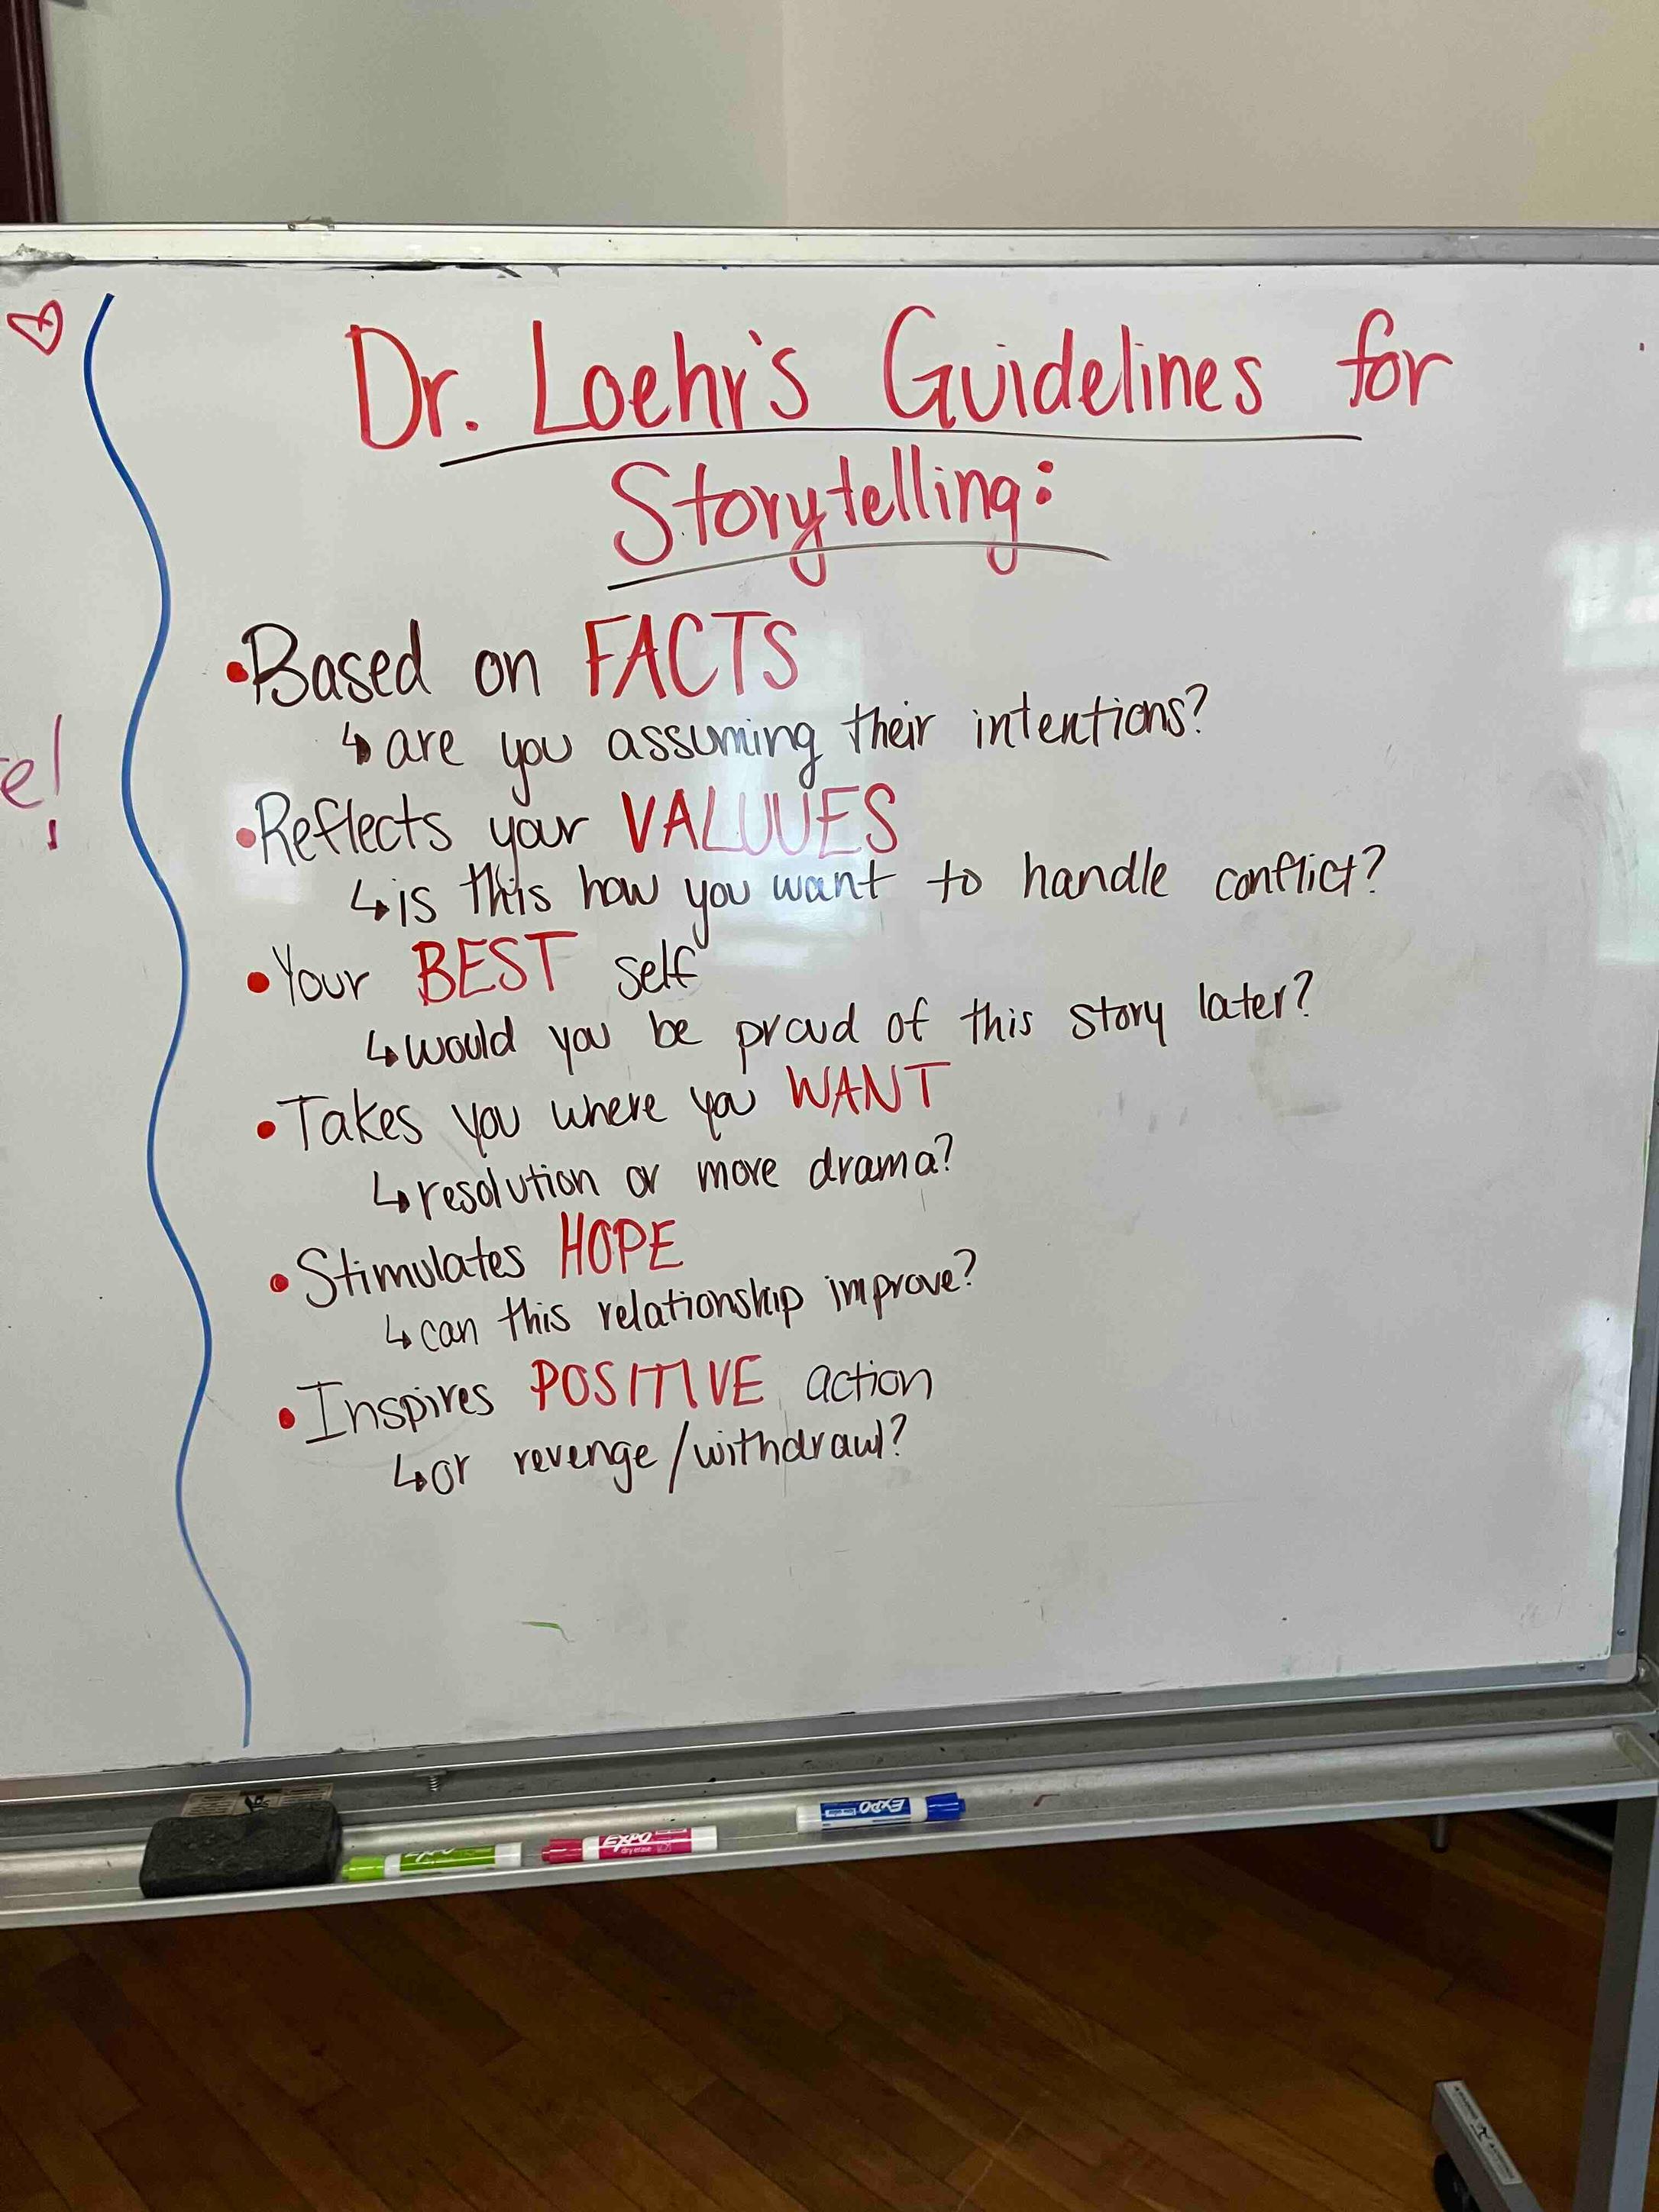 Dr. Loehr's Guidelines for
Storytelling:
•Based on FACTS
↳are you assuming their intentions?
•Reflects your VALUUES
↳is this how you want to handle conflict?
•Your BEST self
↳would you be proud of this story later?
•Takes you where you WANT
↳resolution or more drama?
•Stimulates HOPE
↳can this relationship improve?
•Inspires POSITIVE action
↳or revenge/withdrawl?
e!
EXPO
EXPO
dry erase
EXPO